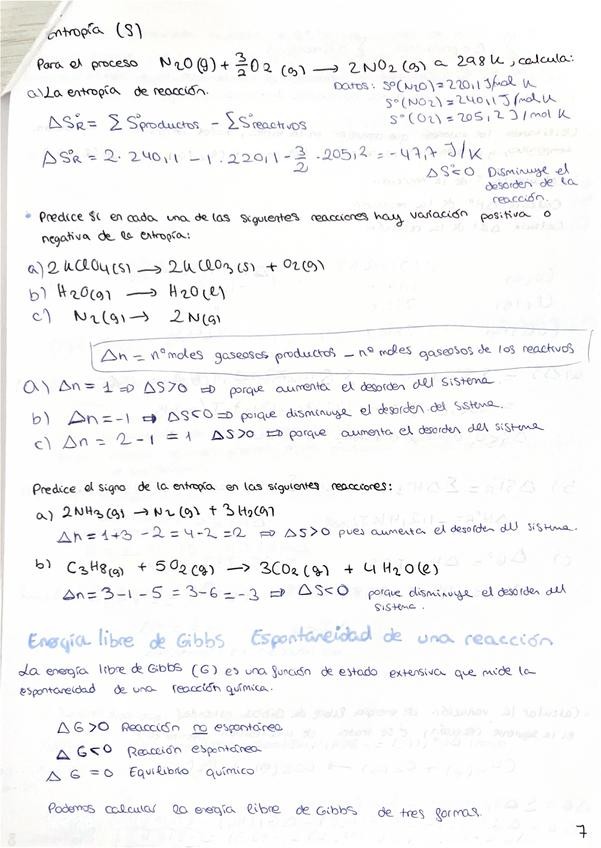 Entropía (S)
Para el proceso N2O(g) + 3/2 O2 (g) → 2NO2 (g) a 298 K, calcula:
a) La entropía de reacción.
Datos: S°(N2O) = 220,1 J/mol K
S°(NO2) = 240,1 J/mol K
S°(O2) = 205,2 J/mol K
ΔS°R = Σ S°productos - Σ S°reactivos
ΔS°R = 2 · 240,1 - 1 · 220,1 - 3/2 · 205,2 = -47,7 J/K
ΔS°<0 Disminuye el
desorden de la
reacción.
• Predice si en cada una de las siguientes reacciones hay variación positiva o
negativa de la entropía:
a) 2KClO4(s) → 2KClO3(s) + O2(g)
b) H2O(g) → H2O(l)
c) N2(g) → 2N(g)
Δn = nº moles gaseosos productos - nº moles gaseosos de los reactivos
a) Δn = 1 ⇒ ΔS>0 ⇒ porque aumenta el desorden del sistema.
b) Δn = -1 ⇒ ΔS<0 ⇒ porque disminuye el desorden del sistema.
c) Δn = 2 - 1 = 1 ΔS>0 ⇒ porque aumenta el desorden del sistema
Predice el signo de la entropía en las siguientes reacciones:
a) 2NH3(g) → N2(g) + 3H2(g)
Δn = 1+3 - 2 = 4 - 2 = 2 ⇒ ΔS>0 pues aumenta el desorden del sistema.
b) C3H8(g) + 5O2(g) → 3CO2(g) + 4H2O(l)
Δn = 3 - 1 - 5 = 3 - 6 = -3 ⇒ ΔS<0 porque disminuye el desorden del
sistema.
Energía libre de Gibbs Espontaneidad de una reacción
La energía libre de Gibbs (G) es una función de estado extensiva que mide la
espontaneidad de una reacción química.
ΔG>0 Reacción no espontánea
ΔG<0 Reacción espontánea
ΔG=0 Equilibrio químico
Podemos calcular la energía libre de Gibbs de tres formas.
7